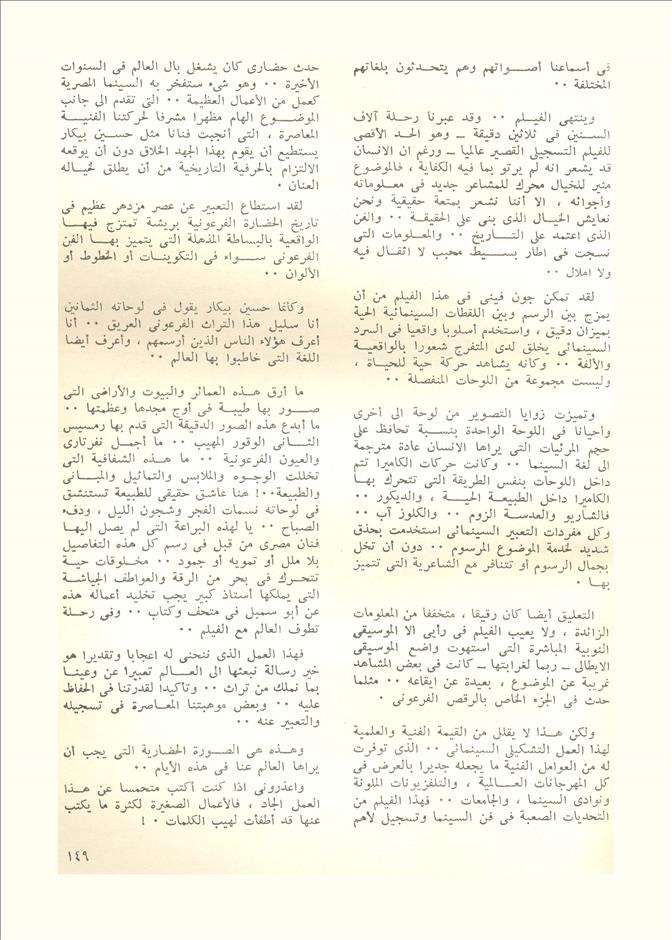 فى أسماعنا أصـــواتهم وهم يتحــدثون بلغاتهم
المختلفة ٠٠
وينتهى الفيـلم ٠٠ وقد عبرنا رحـلة آلاف
الســنين فى ثلاثين دقيقة ــ وهو الحـد الأقصى
للفيلم التسجيلى القصير عالميا ــ ورغم ان الانسان
قد يشعر انه لم يرتو بما فيه الكفاية ، فالموضوع
مثير للخيال محرك للمشاعر جديد فى معلوماته
وأجوائه ، الا أننا نشـعر بمتعة حقيقية ونحن
نعايش الخيـال الذى بنى على الحقيقـة ٠٠ والفن
الذى اعتمد على التــاريخ ٠٠ والمعـلومات التى
نسجت فى اطار بســيط محبب لا اثقـال فيه
ولا املال ٠٠
لقد تمكن جون فينى فى هذا الفيلم من أن
يمزج بين الرسم وبين اللقطات السينمائية الحية
بميزان دقيق ، واستخدم أسلوبا واقعيا فى السرد
السينمائى يخلق لدى المتفرج شعورا بالواقعيـة
والألفة ٠٠ وكأنه يشاهد حركة حية للحيـاة ،
وليست مجموعة من اللوحات المنفصلة ٠٠
وتميزت زوايا التصوير من لوحة الى أخرى
وأحيانا فى اللوحة الواحدة بنســبة تحافظ على
حجم المرئيات التى يراها الانسان عادة مترجمة
الى لغة السينما ٠٠ وكانت حركات الكاميرا تتم
داخل اللوحات بنفس الطريقة التى تتحرك بهـا
الكاميرا داخل الطبيعـة الحيــة ، والديكور ٠٠
فالشاريو والعدســة الزوم ٠٠ والكلوز آب ٠٠
وكل مفردات التعبير السينمائى استخدمت بحذق
شديد لخدمة الموضوع المرسوم ٠٠ دون أن تخل
بجمال الرسوم أو تتنافر مع الشاعرية التى تتميز
بهـا ٠
التعليق أيضا كان رقيقا ، متخففا من المعلومات
الزائدة ، ولا يعيب الفيلم فى رأيى الا الموسيقى
النوبية المباشرة التى استهوت واضع الموسيقى
الايطالى ــ ربما لغرابتها ــ كانت فى بعض المشاهد
غريبة عن الموضوع ، بعيدة عن ايقاعه ٠٠ مثلما
حدث فى الجزء الخاص بالرقص الفرعونى ٠
ولكن هــذا لا يقلل من القيمة الفنية والعلمية
لهذا العمل التشكيلى السينمائى ٠٠ الذى توفرت
له من العوامل الفنية ما يجعله جديرا بالعرض فى
كل المهرجانات العـــالمية ، والتلفزيونات الملونة
ونوادى السينما ، والجامعات ٠٠ فهذا الفيلم من
التحديات الصعبة فى فن السينما وتسجيل لأهم
حدث حضارى كان يشغل بال العالم فى السنوات
الأخيرة ٠٠ وهو شىء ستفخر به السينما المصرية
كعمل من الأعمال العظيمة ٠٠ التى تقدم الى جانب
الموضــوع الهام مظهرا مشرفا لحركتنا الفنيــة
المعاصرة ، التى أنجبت فنانا مثل حســين بيكار
يستطيع أن يقوم بهذا الجهد الخلاق دون أن يوقعه
الالتزام بالحرفية التاريخية من أن يطلق لخيـاله
العنان ٠
لقد استطاع التعبير عن عصر مزدهر عظيم فى
تاريخ الحضارة الفرعونية بريشة تمتزج فيهــا
الواقعية بالبساطة المذهلة التى يتميز بهـا الفن
الفرعونى ســواء فى التكوينـات أو الخطوط أو
الألوان ٠٠
وكأنما حسين بيكار يقول فى لوحاته الثمانين
أنا سليل هـذا التراث الفرعونى العريق ٠٠ أنا
أعرف هؤلاء الناس الذين أرسمهم ، وأعرف أيضا
اللغة التى خاطبوا بها العالم ٠٠
ما أرق هــذه العمائر والبيوت والأراضى التى
صــور بها طيبـة فى أوج مجدها وعظمتها ٠٠
ما أبدع هذه الصور الدقيقة التى قدم بها رمسيس
الثــانى الوقور المهيب ٠٠ ما أجمـل نفرتارى
والعيون الفرعونية ٠٠ ما هــذه الشفافية التى
تخللت الوجـوه والملابس والتماثيل والمبــانى
والطبيعة٠٠! هنا عاشـق حقيقى للطبيعة تستنشق
فى لوحاته نسمات الفجر وشجون الليل ، ودفء
الصباح ٠٠ يا لهذه البراعة التى لم يصل اليهـا
فنان مصرى من قبل فى رسم كل هذه التفاصيل
بلا ملل أو تمويه أو جمود ٠٠ مخـلوقات حيـة
تتحــرك فى بحر من الرقة والعواطف الجياشــة
التى يملكها أستاذ كبير يجب تخليد أعماله هذه
عن أبو سمبل فى متحف وكتاب ٠٠ وفى رحـلة
تطوف العالم مع الفيلم ٠٠
فهذا العمل الذى ننحنى له اعجابا وتقديرا هو
خير رسالة نبعثها الى العــالم تعبيرا عن وعينـا
بما نملك من تراث ٠٠ وتأكيدا لقدرتنا فى الحفاظ
عليه ٠٠ وبعض موهبتنا المعـاصرة فى تسجيله
والتعبير عنه ٠٠
وهــذه هى الصـورة الحضارية التى يجب أن
يراها العالم عنا فى هذه الأيام ٠٠
واعذرونى اذا كنت أكتب متحمسا عن هــذا
العمل الجاد ، فالأعمال الصغيرة لكثرة ما يكتب
عنها قد أطفأت لهيب الكلمات ٠ !
١٤٩